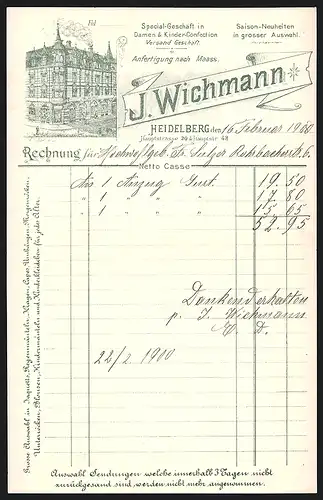 Special-Geschäft in
Damen & Kinder-Confection
Versand Geschäft.
Anfertigung nach Maass.
Saison-Neuheiten
in grosser Auswahl.
J. Wichmann
HEIDELBERG den 16 Februar 1900
Hauptstrasse
Rechnung für Hochwohlgeb. Fr. Rohrbacherstr. 6.
Netto Cassa
An 1 Anzug Gust. 19 50
" 1 " " 17 80
" 1 " " 15 65
52.95
Dankend erhalten
p. J. Wichmann
22/2 1900
Grosse Auswahl in Jaquetts, Regenmänteln, Kragen, Capes, Umhängen, Morgenröcken,
Unterröcken, Blousen, Kindermänteln und Kinderkleidchen für jedes Alter.
Auswahl Sendungen welche innerhalb 3 Tagen nicht
zurückgesand sind, werden nicht mehr angenommen.